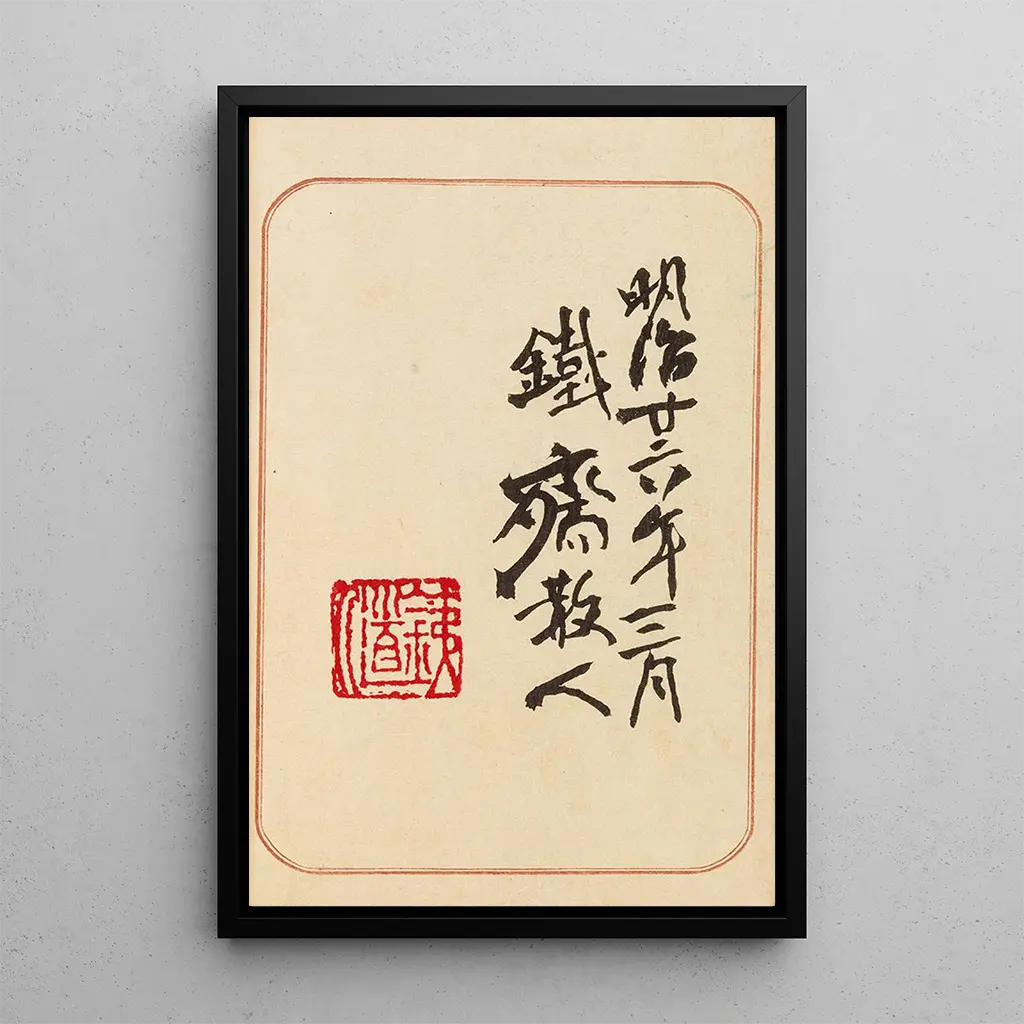 明治廿六年三月
鐵齋散人
銕道人